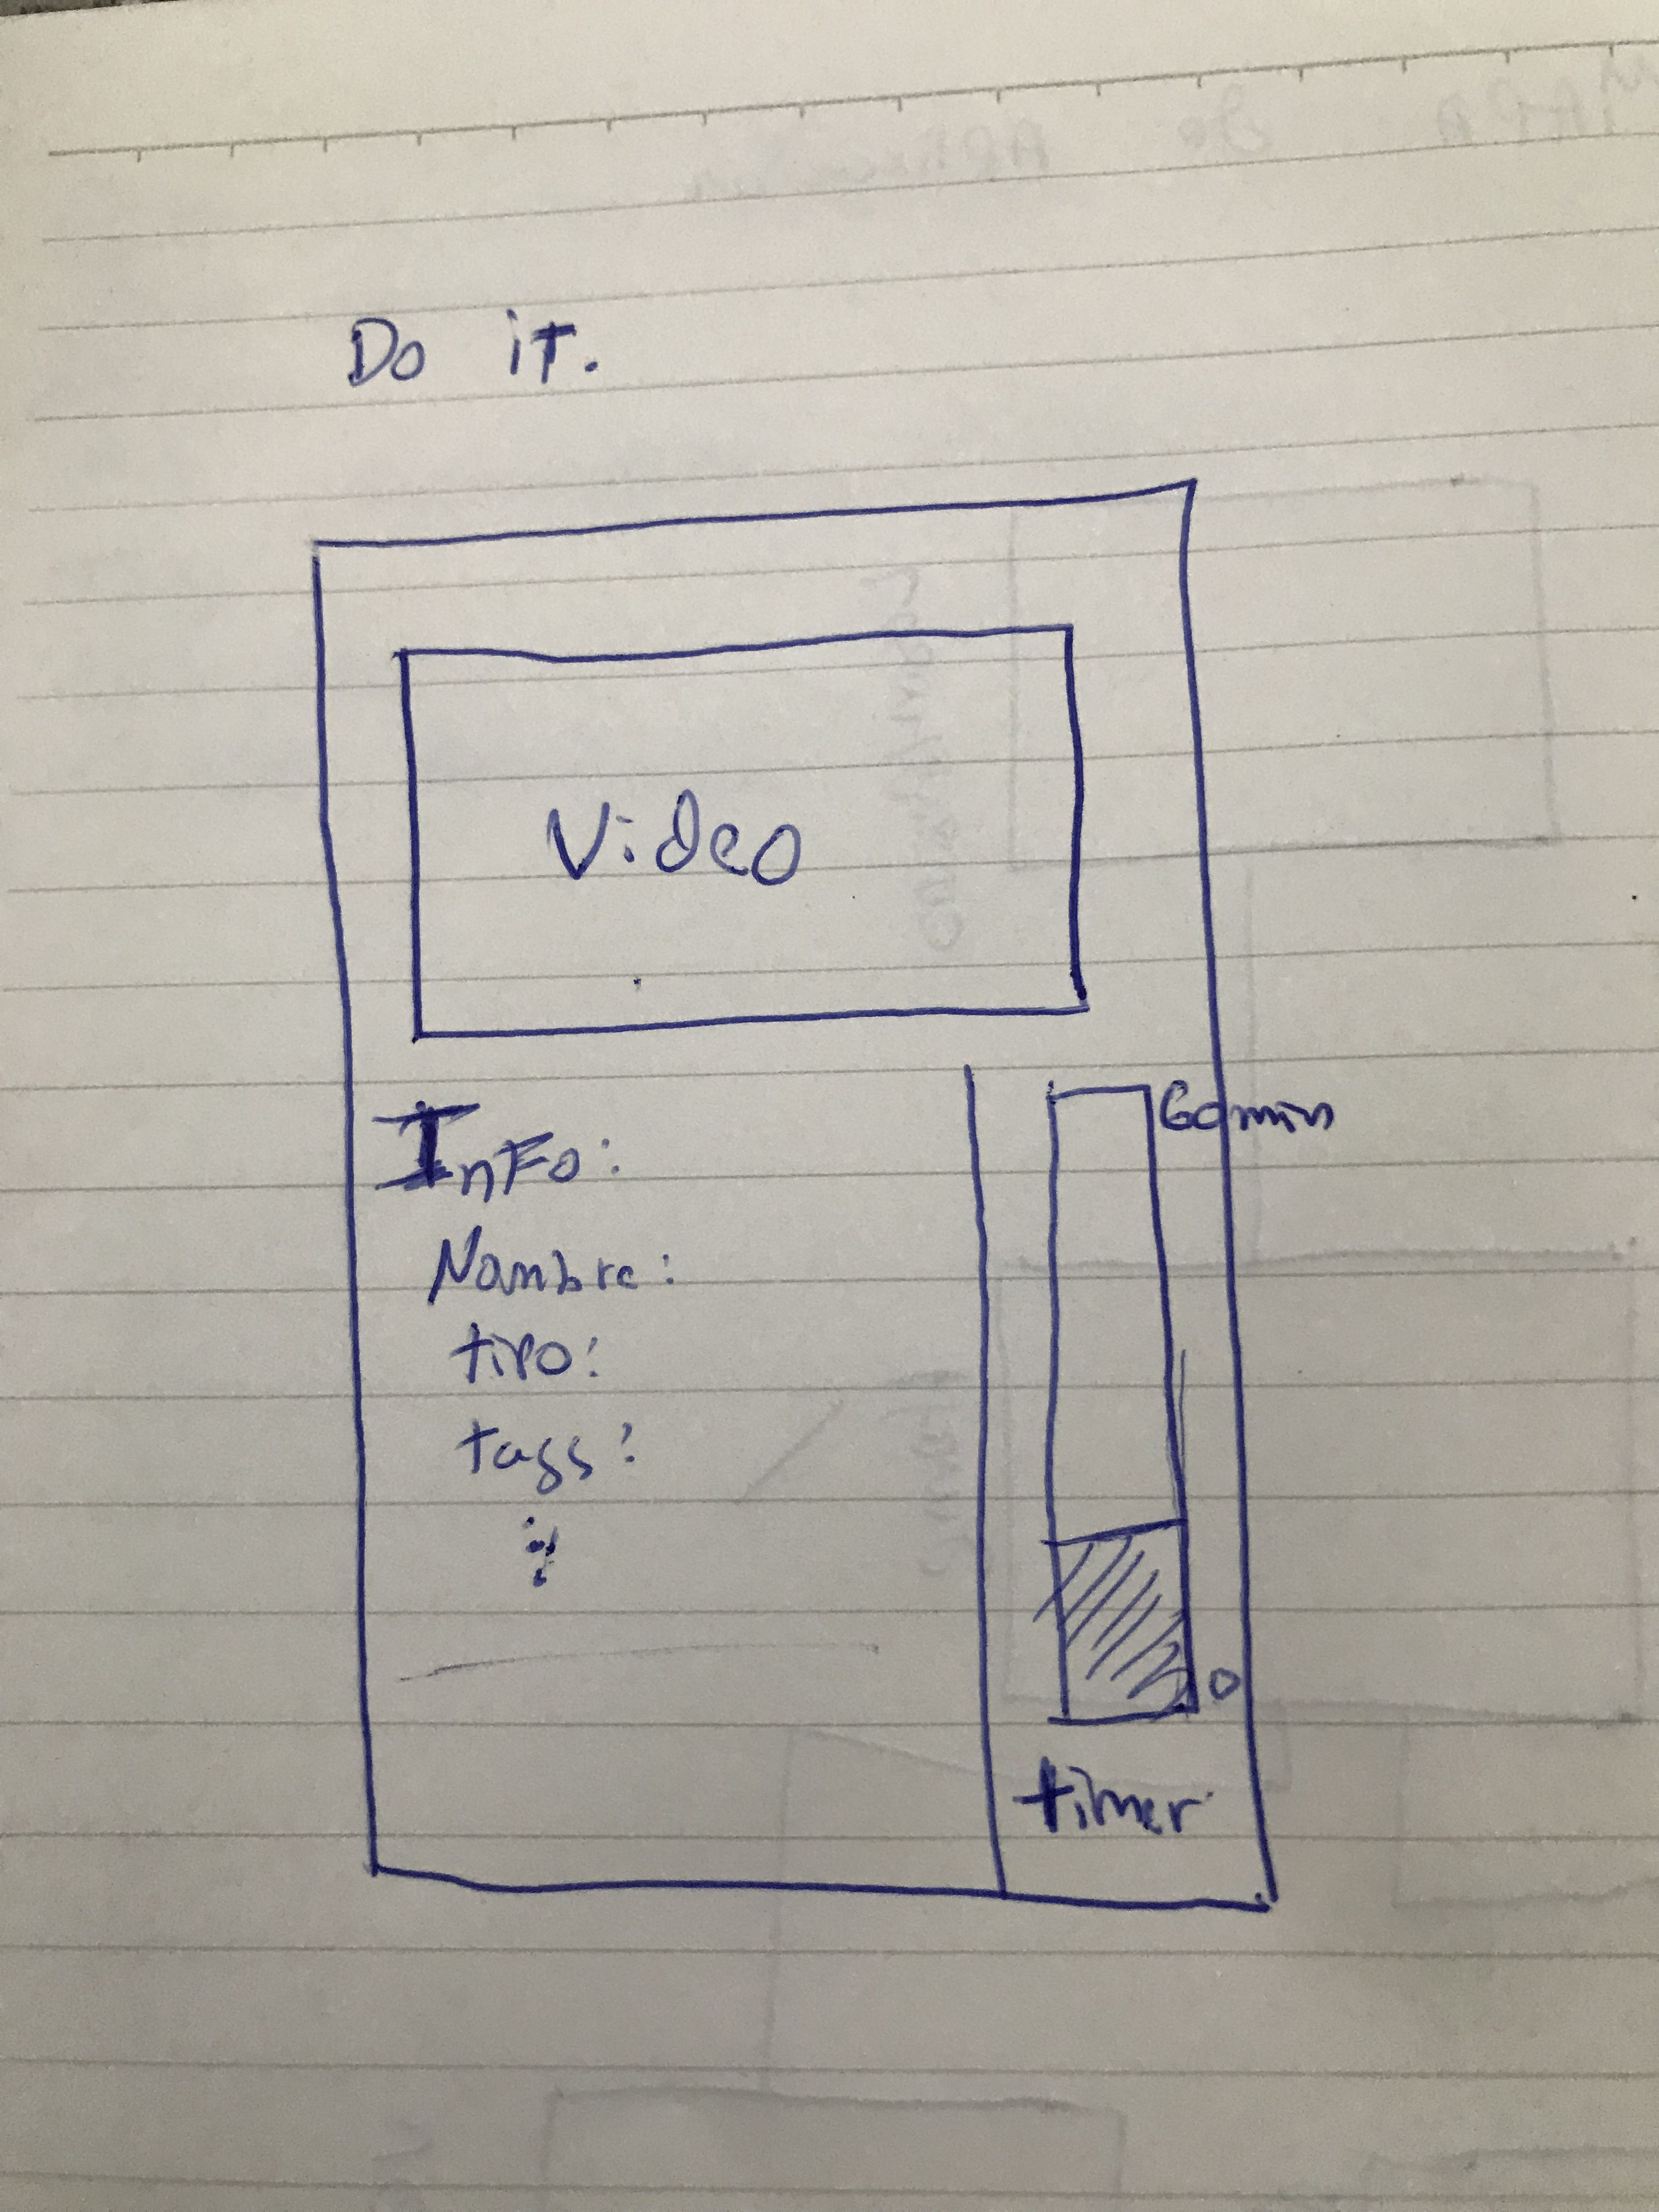 Do it.
Video
Info:
Nombre:
tipo:
tags:
60min
0
timer